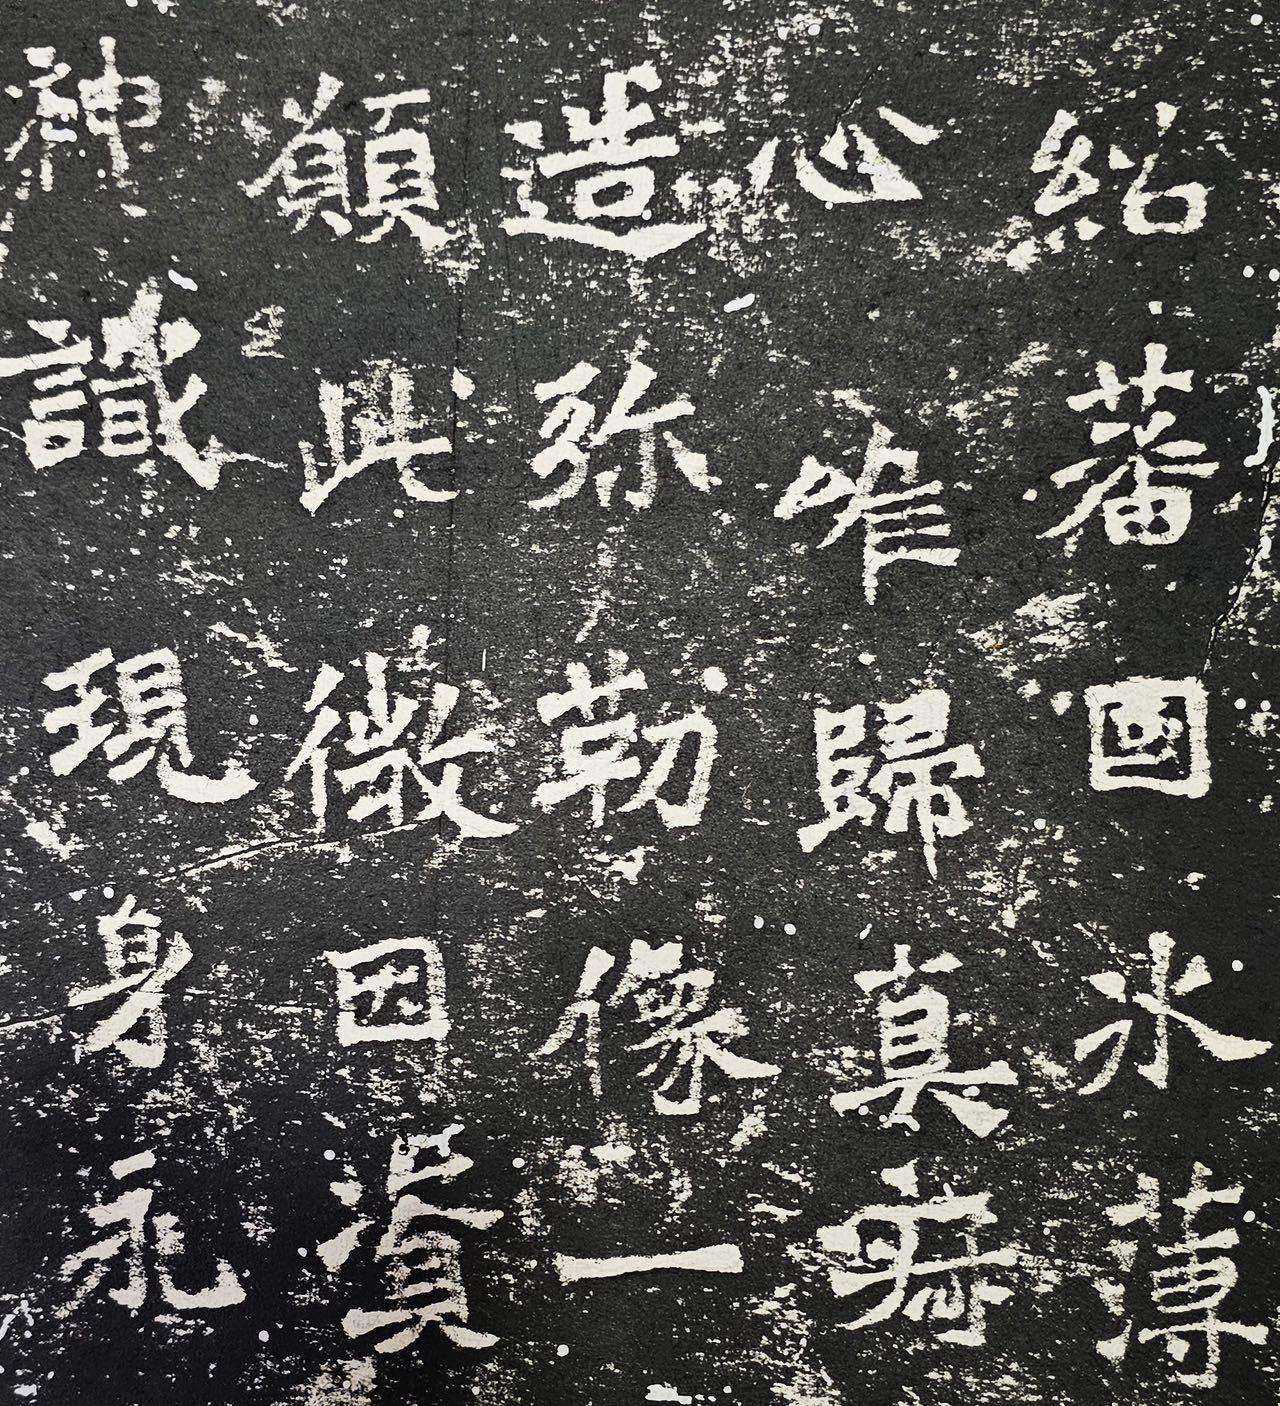 紹蕃國冰薄
心唯歸真寂
造弥勒像一
願此微因資
神識現身永